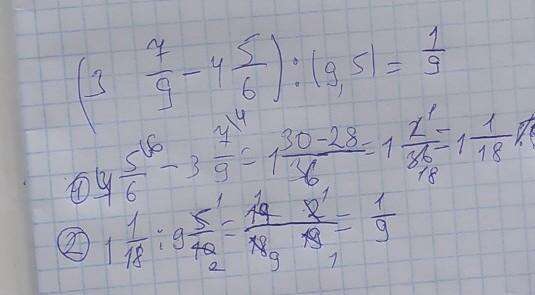 (3 7/9 - 4 5/6) : (9,5) = 1/9
① 4 5/6 \6 - 3 7/9 \4 = 1 30-28/36 = 1 2 1/36 18 = 1 1/18
② 1 1/18 : 9 5 1/10 2 = 19 1 2 1/18 9 19 1 = 1/9